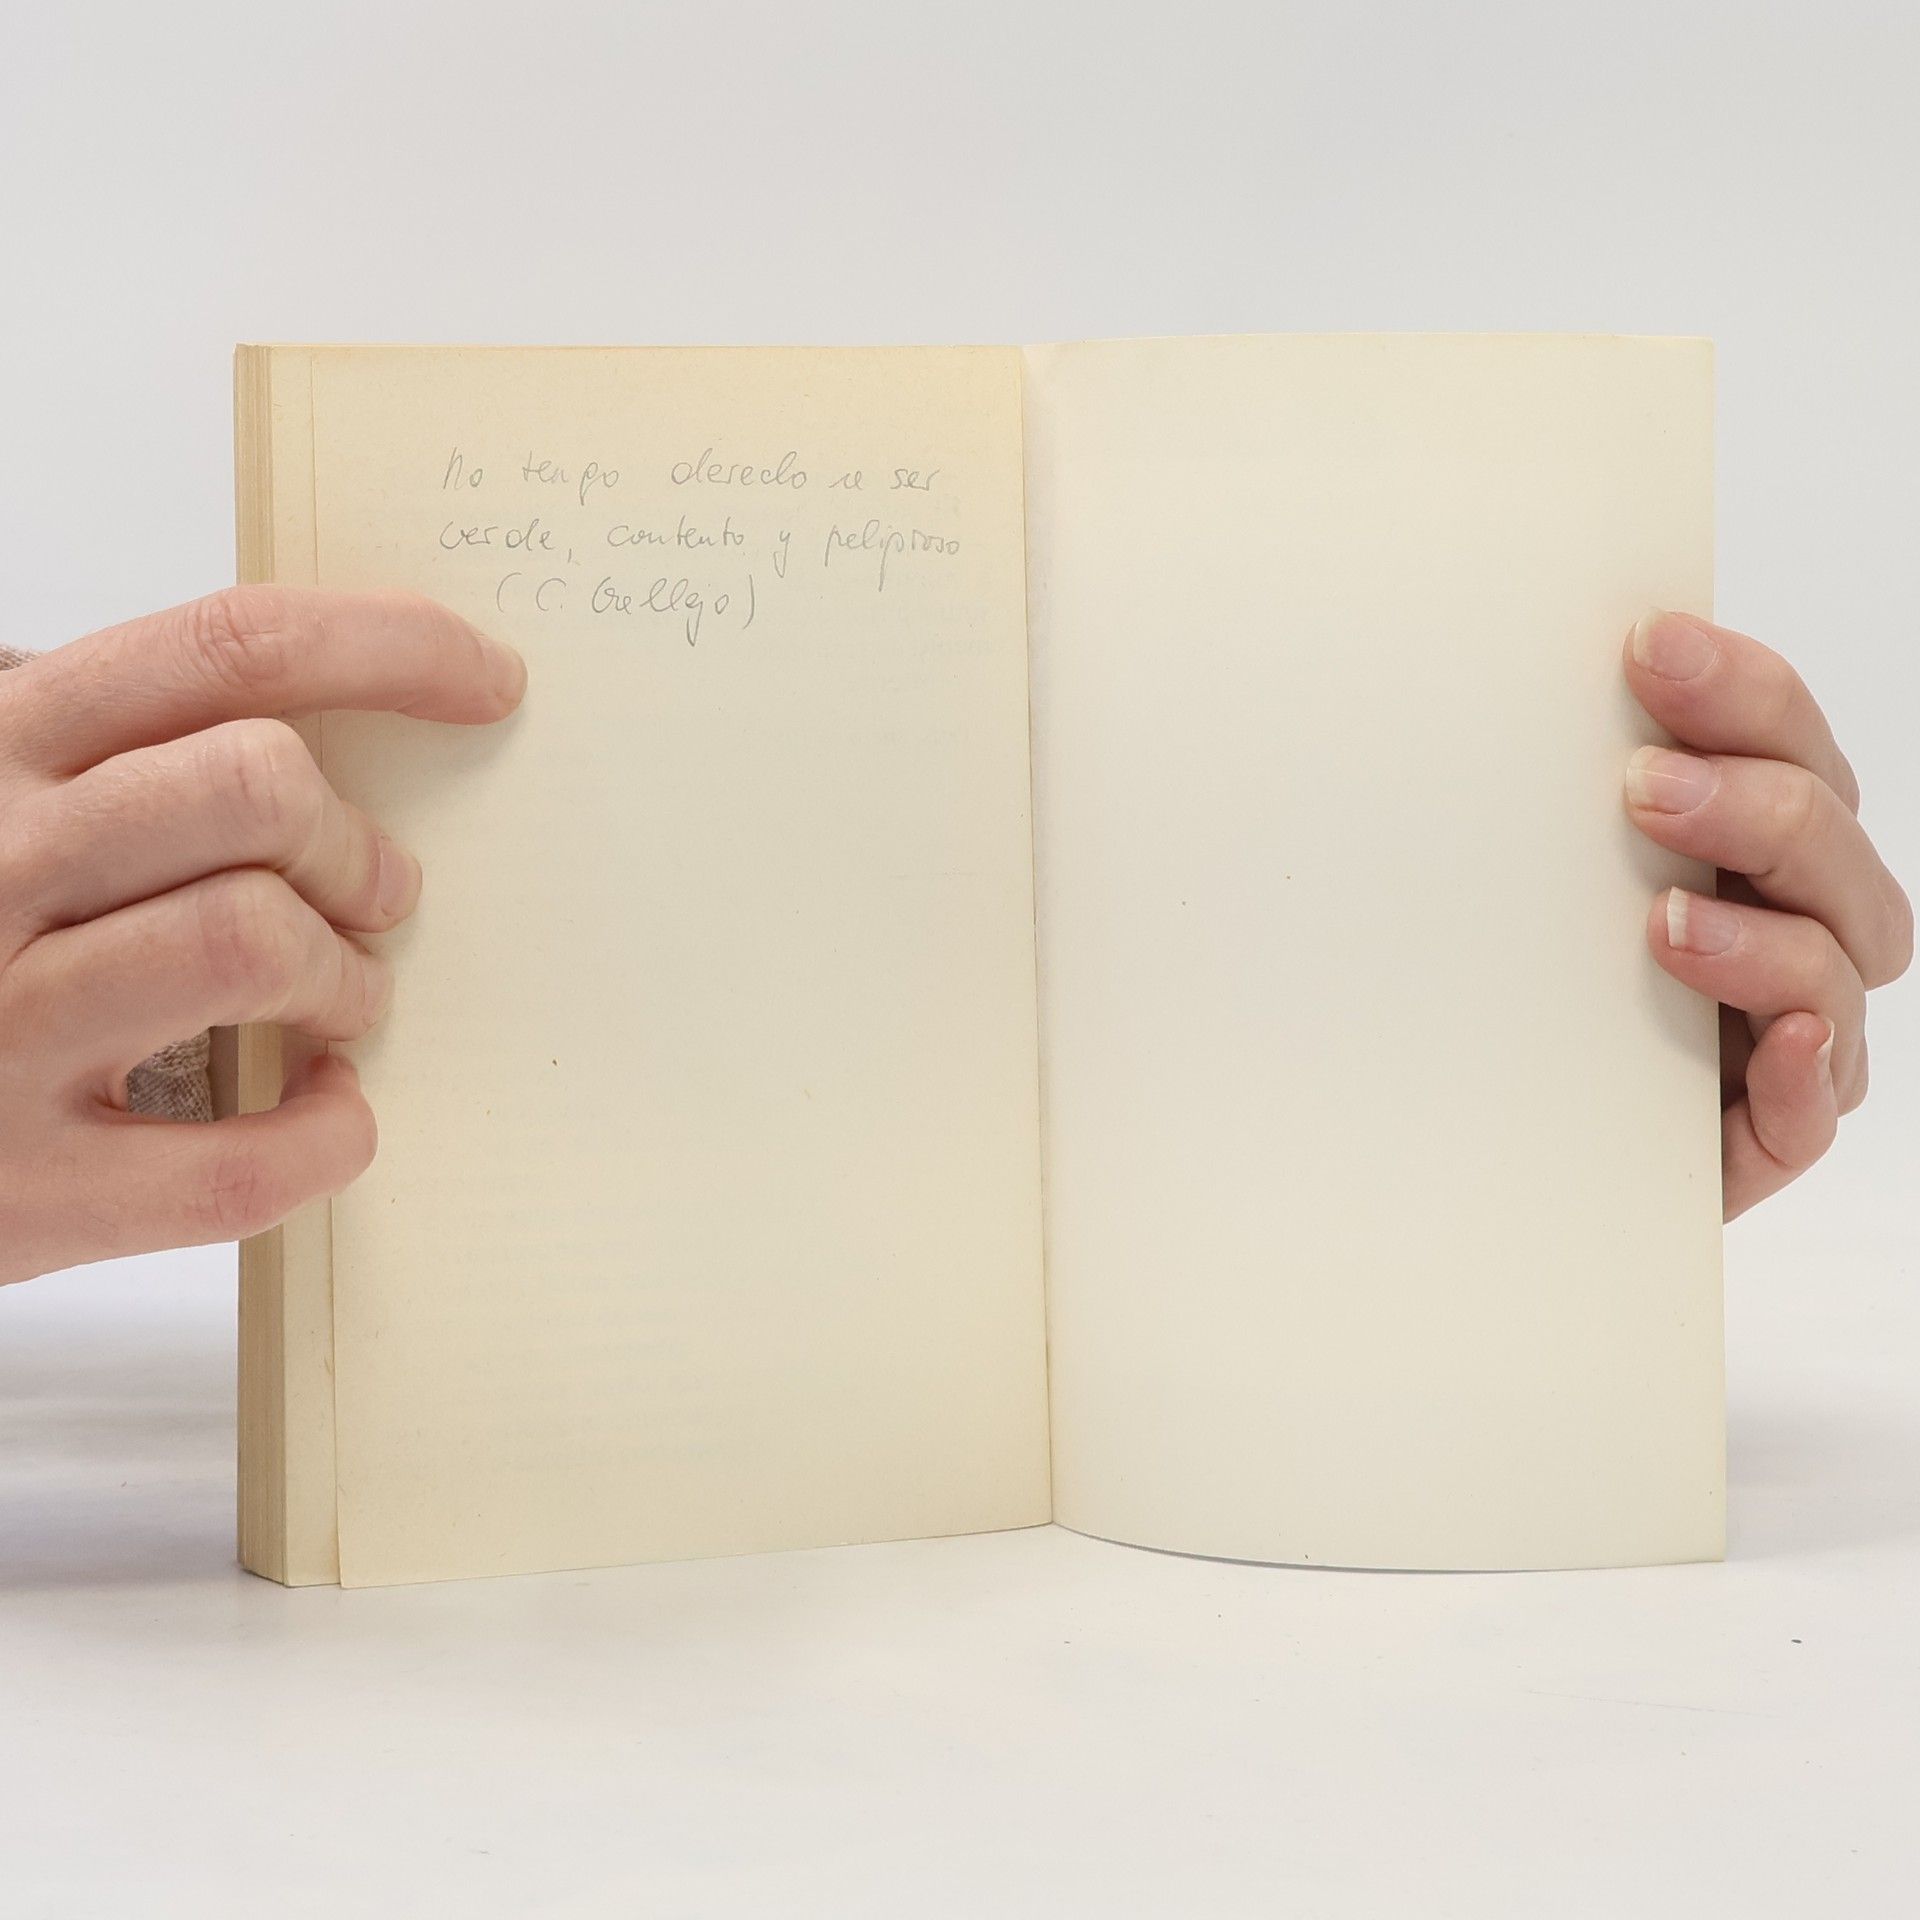 No tengo derecho a ser
verde, contento y peligroso
(C. Vallejo)